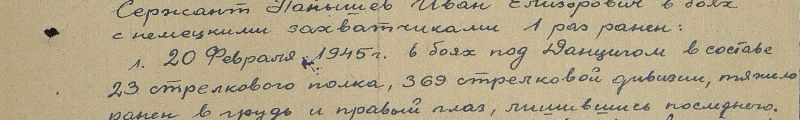 Сержант Паньшев Иван Елизорович в боях
с немецкими захватчиками 1 раз ранен:
1. 20 Февраля 1945 г. в боях под Данцигом в составе
23 стрелкового полка, 369 стрелковой дивизии, тяжело
ранен в грудь и правый глаз, лишившись последнего.